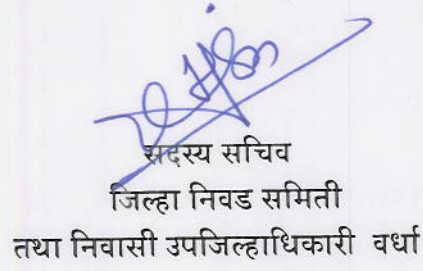 सदस्य सचिव
जिल्हा निवड समिती
तथा निवासी उपजिल्हाधिकारी वर्धा